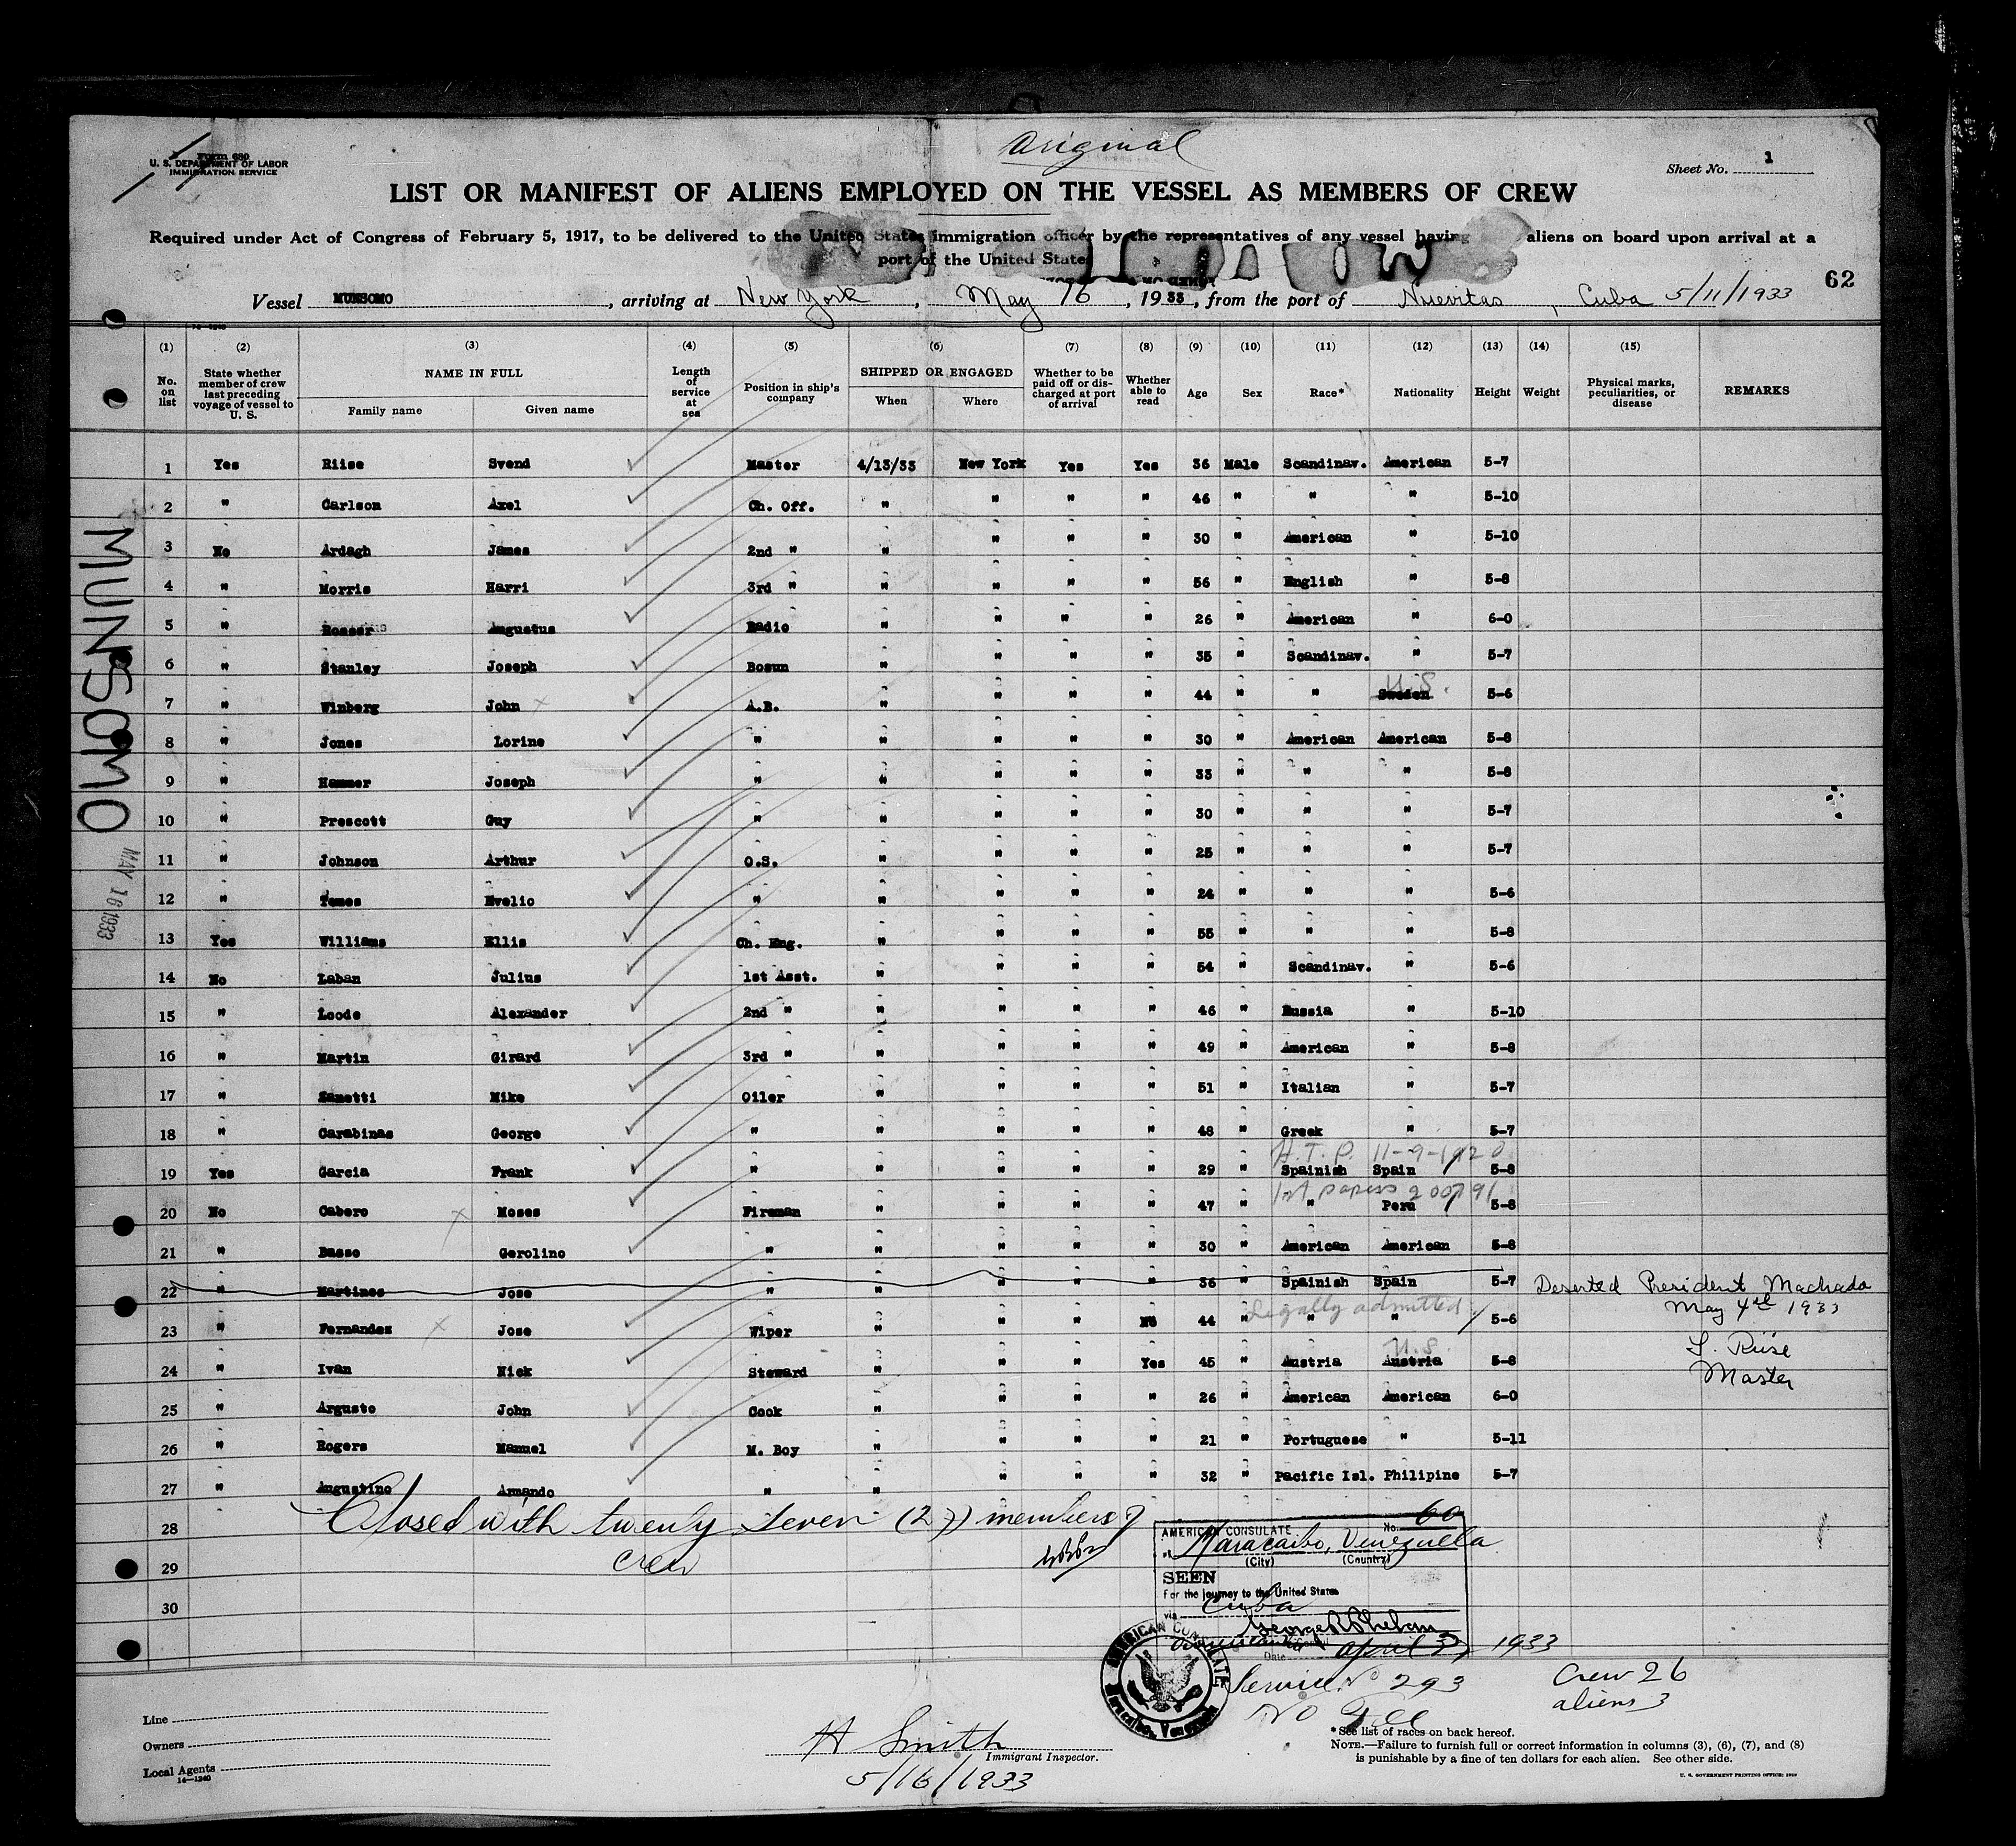 Original
Form 680
U. S. DEPARTMENT OF LABOR
IMMIGRATION SERVICE
Sheet No. 1
LIST OR MANIFEST OF ALIENS EMPLOYED ON THE VESSEL AS MEMBERS OF CREW
Required under Act of Congress of February 5, 1917, to be delivered to the United States immigration officer by the representatives of any vessel having aliens on board upon arrival at a
port of the United States
62
Vessel MUNSOMO, arriving at New York, May 16, 1933, from the port of Nuevitas, Cuba 5/11/1933
(1) (2) (3) (4) (5) (6) (7) (8) (9) (10) (11) (12) (13) (14) (15)
No. on list State whether member of crew last preceding voyage of vessel to U. S. NAME IN FULL Family name Given name Length of service at sea Position in ship's company SHIPPED OR ENGAGED When Where Whether to be paid off or discharged at port of arrival Whether able to read Age Sex Race* Nationality Height Weight Physical marks, peculiarities, or disease REMARKS
1 Yes Riise Svend Master 4/13/33 New York Yes Yes 36 Male Scandinav. American 5-7
2 " Carlson Axel Ch. Off. " " " " 46 " " " 5-10
3 No Ardagh James 2nd " " " " " 30 " American " 5-10
4 " Morris Harri 3rd " " " " " 56 " English " 5-8
5 " Rosser Augustus Radio " " " " 26 " American " 6-0
6 " Stanley Joseph Bosun " " " " 35 " Scandinav. " 5-7
7 " Winberg John A.B. " " " " 44 " " Sweden U.S. 5-6
8 " Jones Lorine " " " " " 30 " American American 5-8
9 " Hammer Joseph " " " " " 33 " " " 5-8
10 " Prescott Guy " " " " " 30 " " " 5-7
11 " Johnson Arthur O.S. " " " " 25 " " " 5-7
12 " Tomes Evelio " " " " " 24 " " " 5-6
13 Yes Williams Ellis Ch. Eng. " " " " 55 " " " 5-8
14 No Laban Julius 1st Asst. " " " " 54 " Scandinav. " 5-6
15 " Loode Alexander 2nd " " " " " 46 " Russia " 5-10
16 " Martin Girard 3rd " " " " " 49 " American " 5-8
17 " Zanetti Mike Oiler " " " " 51 " Italian " 5-7
18 " Carabinas George " " " " " 48 " Greek " 5-7
H.T.P. 11-9-1920
19 Yes Garcia Frank " " " " " 29 " Spainish Spain 5-8
1st papers 200791
20 No Cabero Moses Fireman " " " " 47 " " Peru 5-8
21 " Basso Gerolino " " " " " 30 " American American 5-8
22 " Martinos Jose " " " " " 36 " Spainish Spain 5-7 Deserted President Machado
May 4th 1933
Legally admitted
23 " Fernandez Jose Wiper " " " No 44 " " " 5-6
S. Riise
Master
24 " Ivan Nick Steward " " " Yes 45 " Austria Austria U.S. 5-8
25 " Argusto John Cook " " " " 26 " American American 6-0
26 " Rogers Manuel M. Boy " " " " 21 " Portuguese " 5-11
27 " Angustino Armando " " " " " 32 " Pacific Isl. Philipine 5-7
28 Closed with twenty seven (27) members of
29 crew
30
MUNSOMO
MAY 16 1933
AMERICAN CONSULATE No. 60
at Maracaibo, Venezuela
(City) (Country)
SEEN
For the journey to the United States
via Cuba
George R Phelan
Date April 3, 1933
AMERICAN CONSULATE
Maracaibo, Venezuela
Service No 293
No Fee
Crew 26
aliens 3
Line
Owners
Local Agents
14—1240
H Smith
Immigrant Inspector.
5/16/1933
*See list of races on back hereof.
NOTE.—Failure to furnish full or correct information in columns (3), (6), (7), and (8)
is punishable by a fine of ten dollars for each alien. See other side.
U. S. GOVERNMENT PRINTING OFFICE: 1929